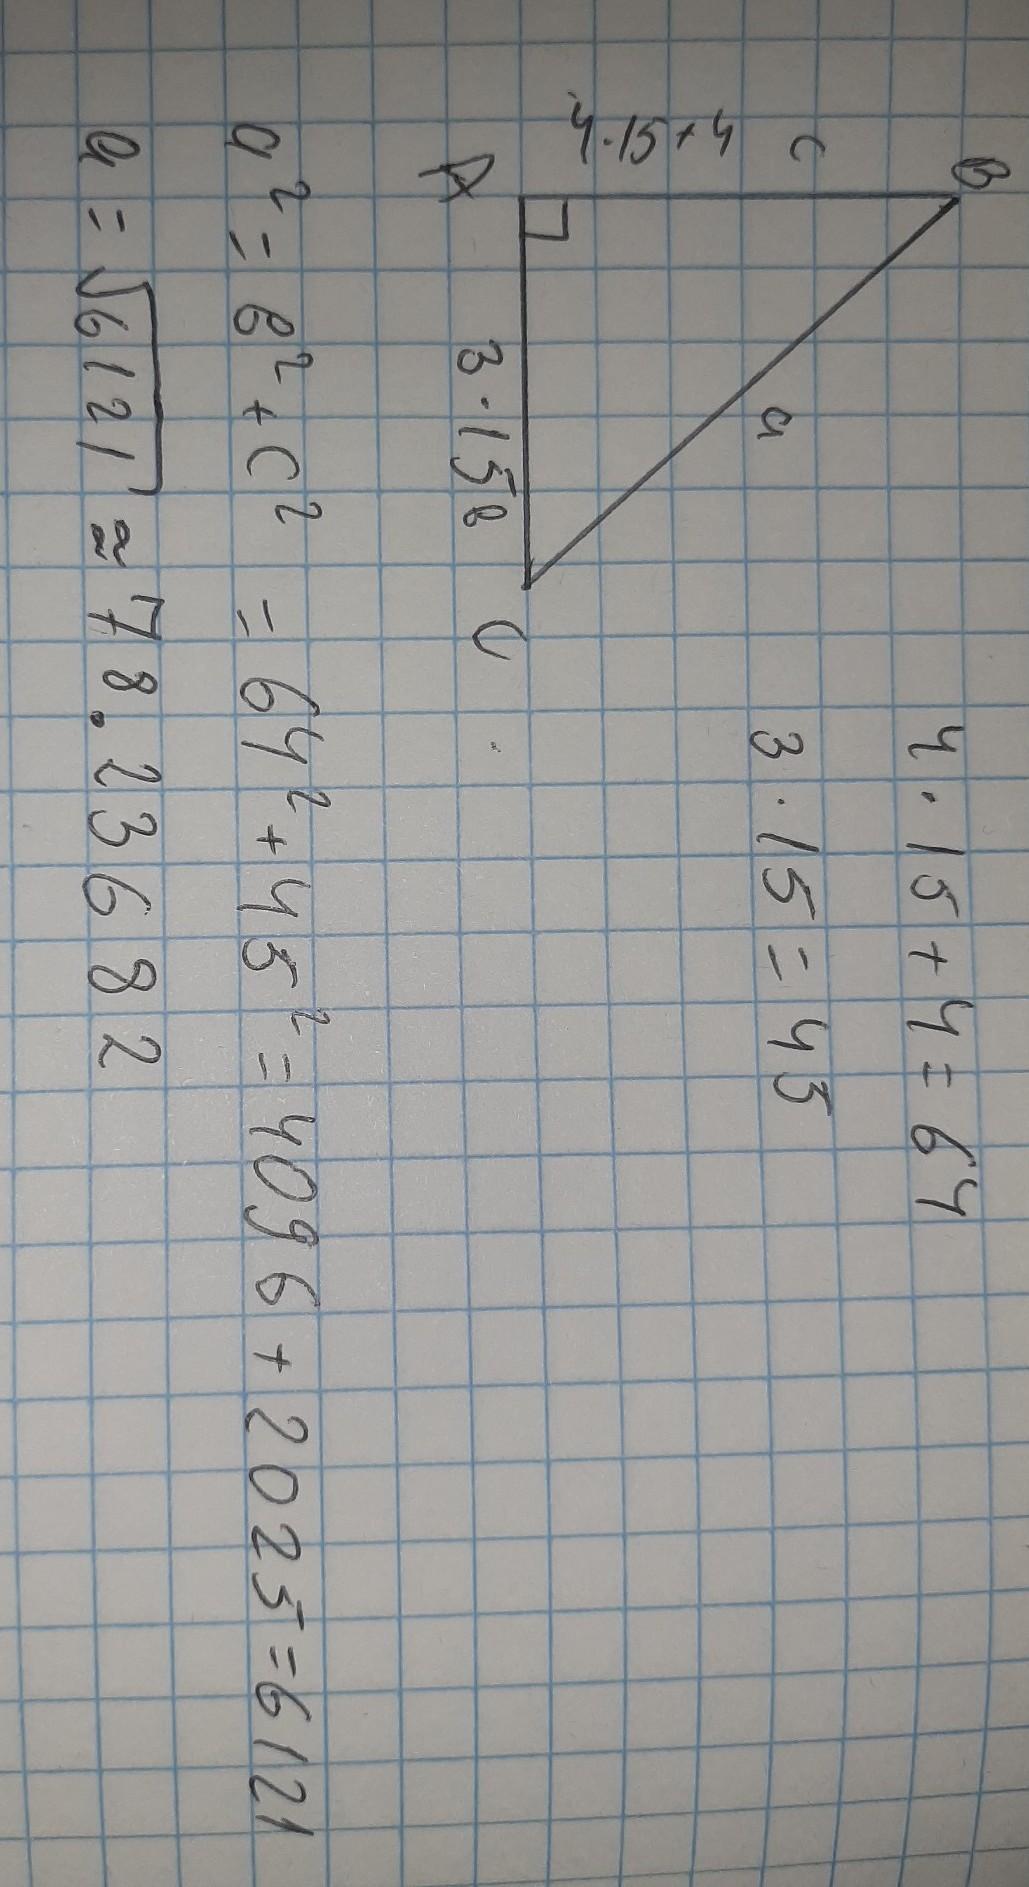 B
4·15+4=64
c
a
3·15=45
4·15+4
A
3·15в
C
a²=в²+c²=64²+45²=4096+2025=6121
a=√6121≈78.23682